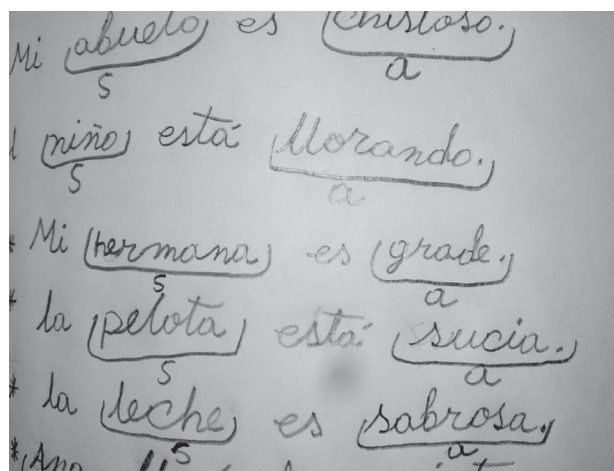 Mi abuelo es chistoso.
s a
niño está llorando.
s a
* Mi hermana es grade.
s a
* la pelota está sucia.
s a
* la leche es sabrosa.
s a
* Ana